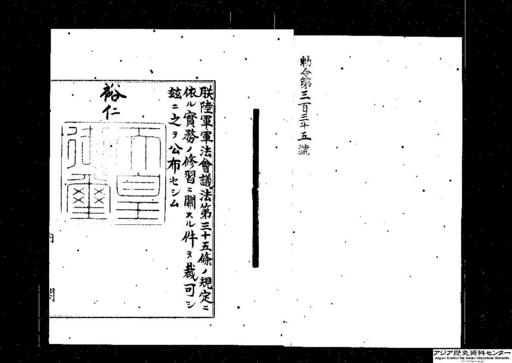 勅令第三百三十五號
朕陸軍軍法會議法第三十五條ノ規定ニ
依ル實務ノ修習ニ關スル件ヲ裁可シ
玆ニ之ヲ公布セシム
裕仁
天皇
御璽
内閣
アジア歴史資料センター
Japan Center for Asian Historical Records